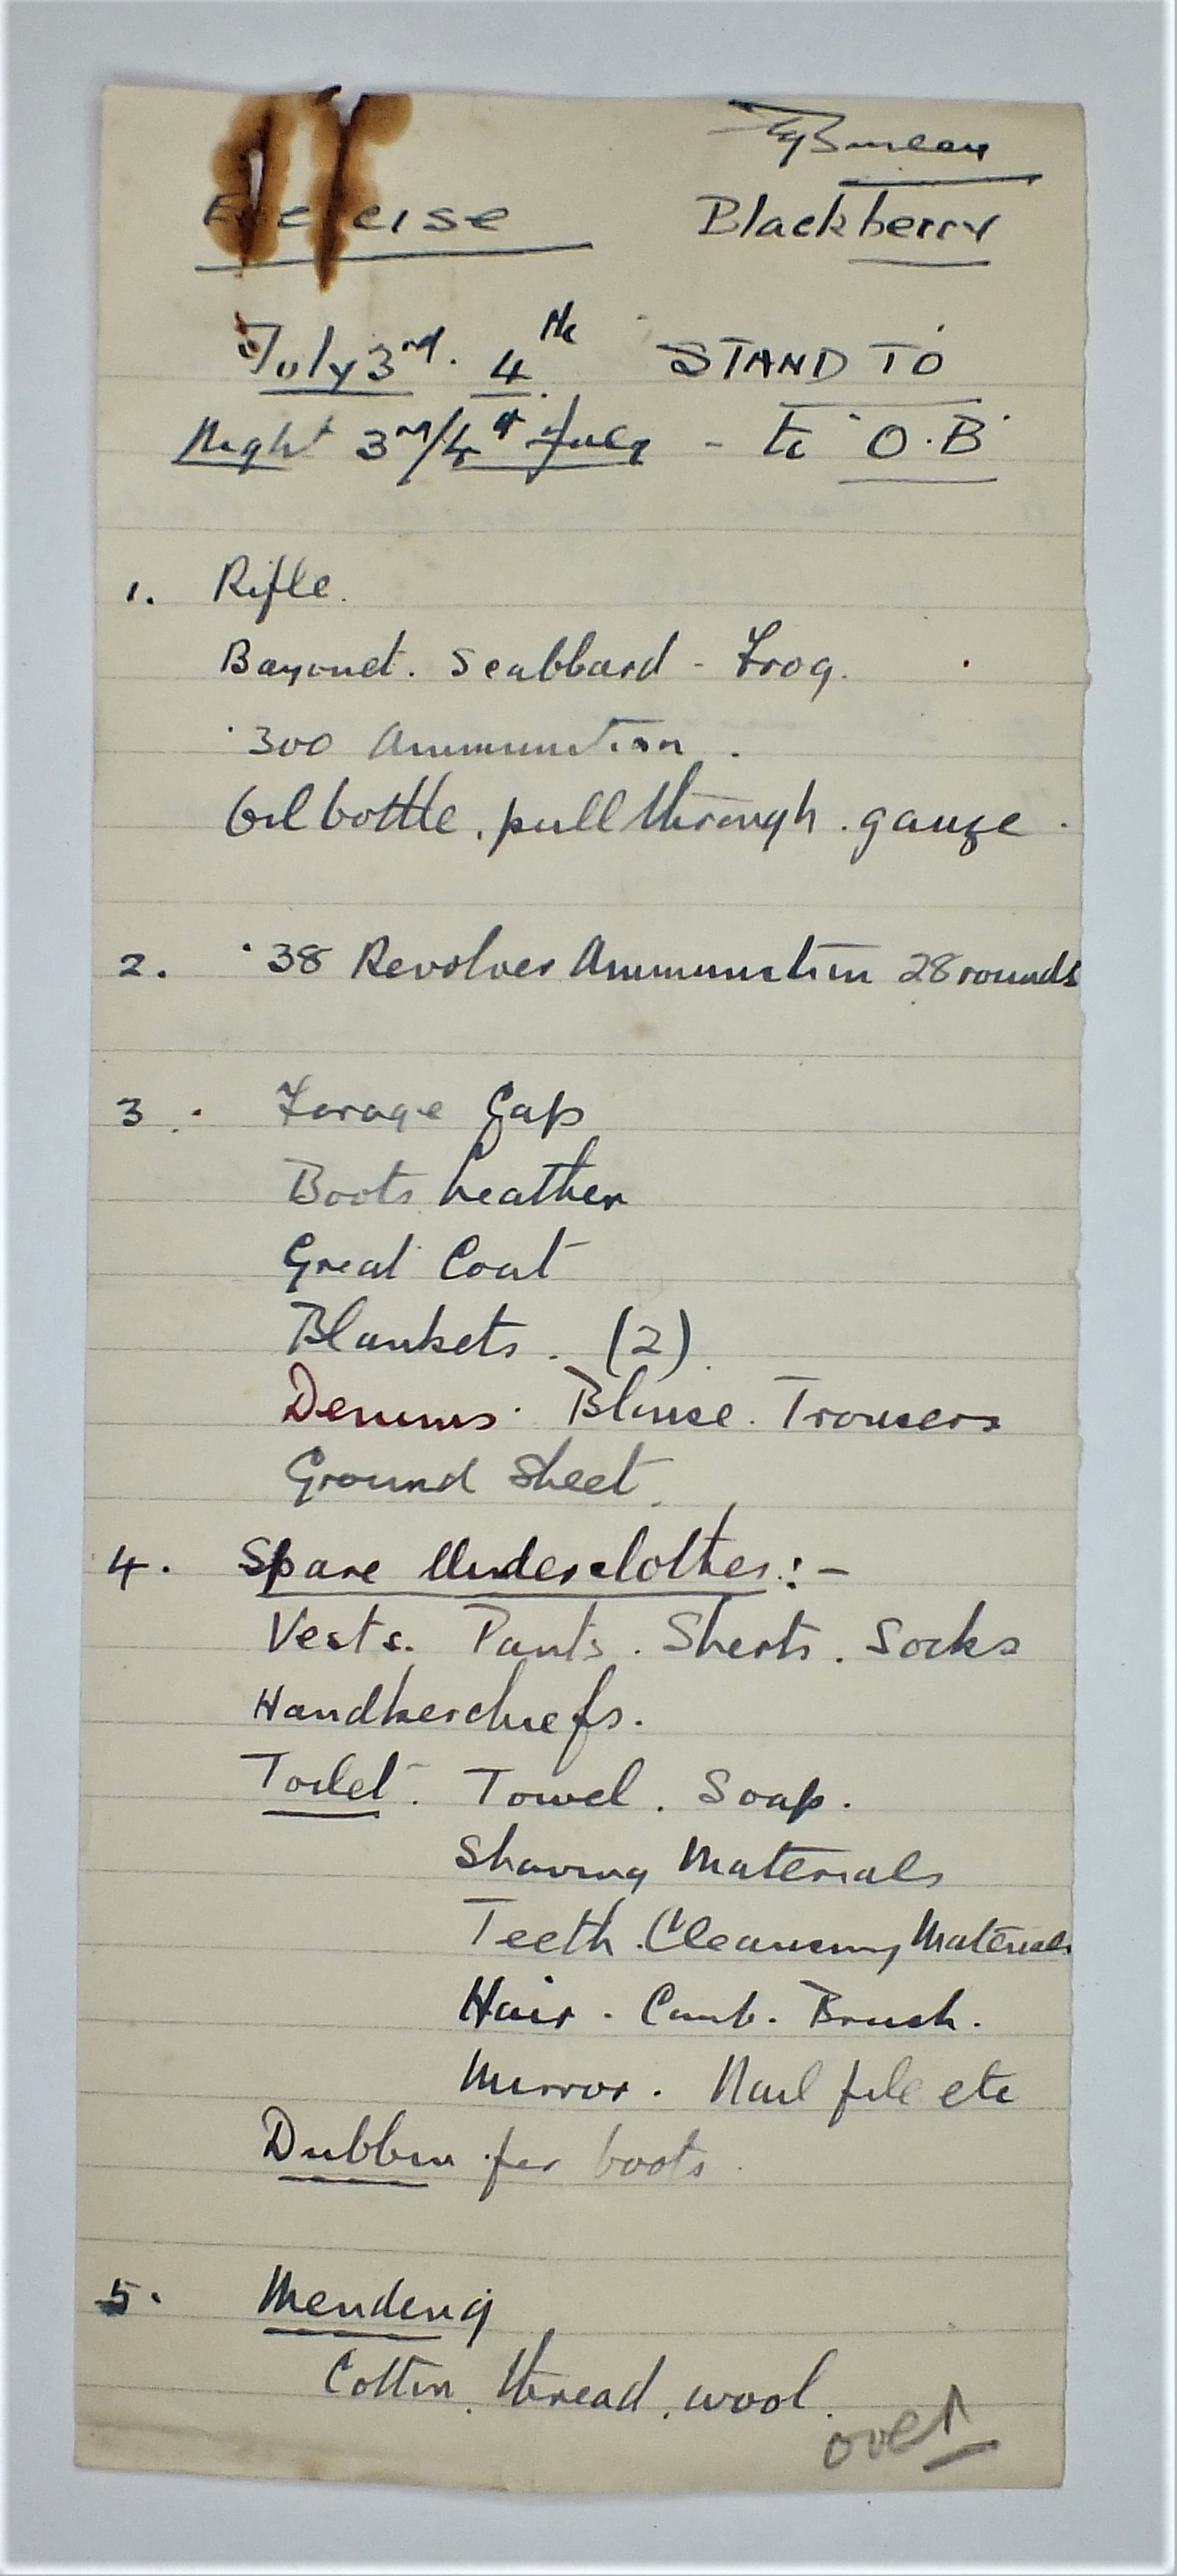 Exercise Blackberry
July 3rd. 4th STAND TO
Night 3rd/4th July - to "O.B"
1. Rifle.
Bayonet. Scabbard - Frog.
.300 Ammunition.
Oil bottle. pull through. gauze.
2. .38 Revolver Ammunition 28 rounds
3. Forage Cap
Boots Leather
Great Coat
Blankets. (2).
Denims. Blouse. Trousers
Ground Sheet.
4. Spare Underclothes:-
Vests. Pants. Shirts. Socks
Handkerchiefs.
Toilet. Towel. Soap.
Shaving Materials
Teeth. Cleansing Materials
Hair. Comb. Brush.
Mirror. Nail file etc
Dubbin for boots.
5. Mending
Cotton, thread, wool.
over